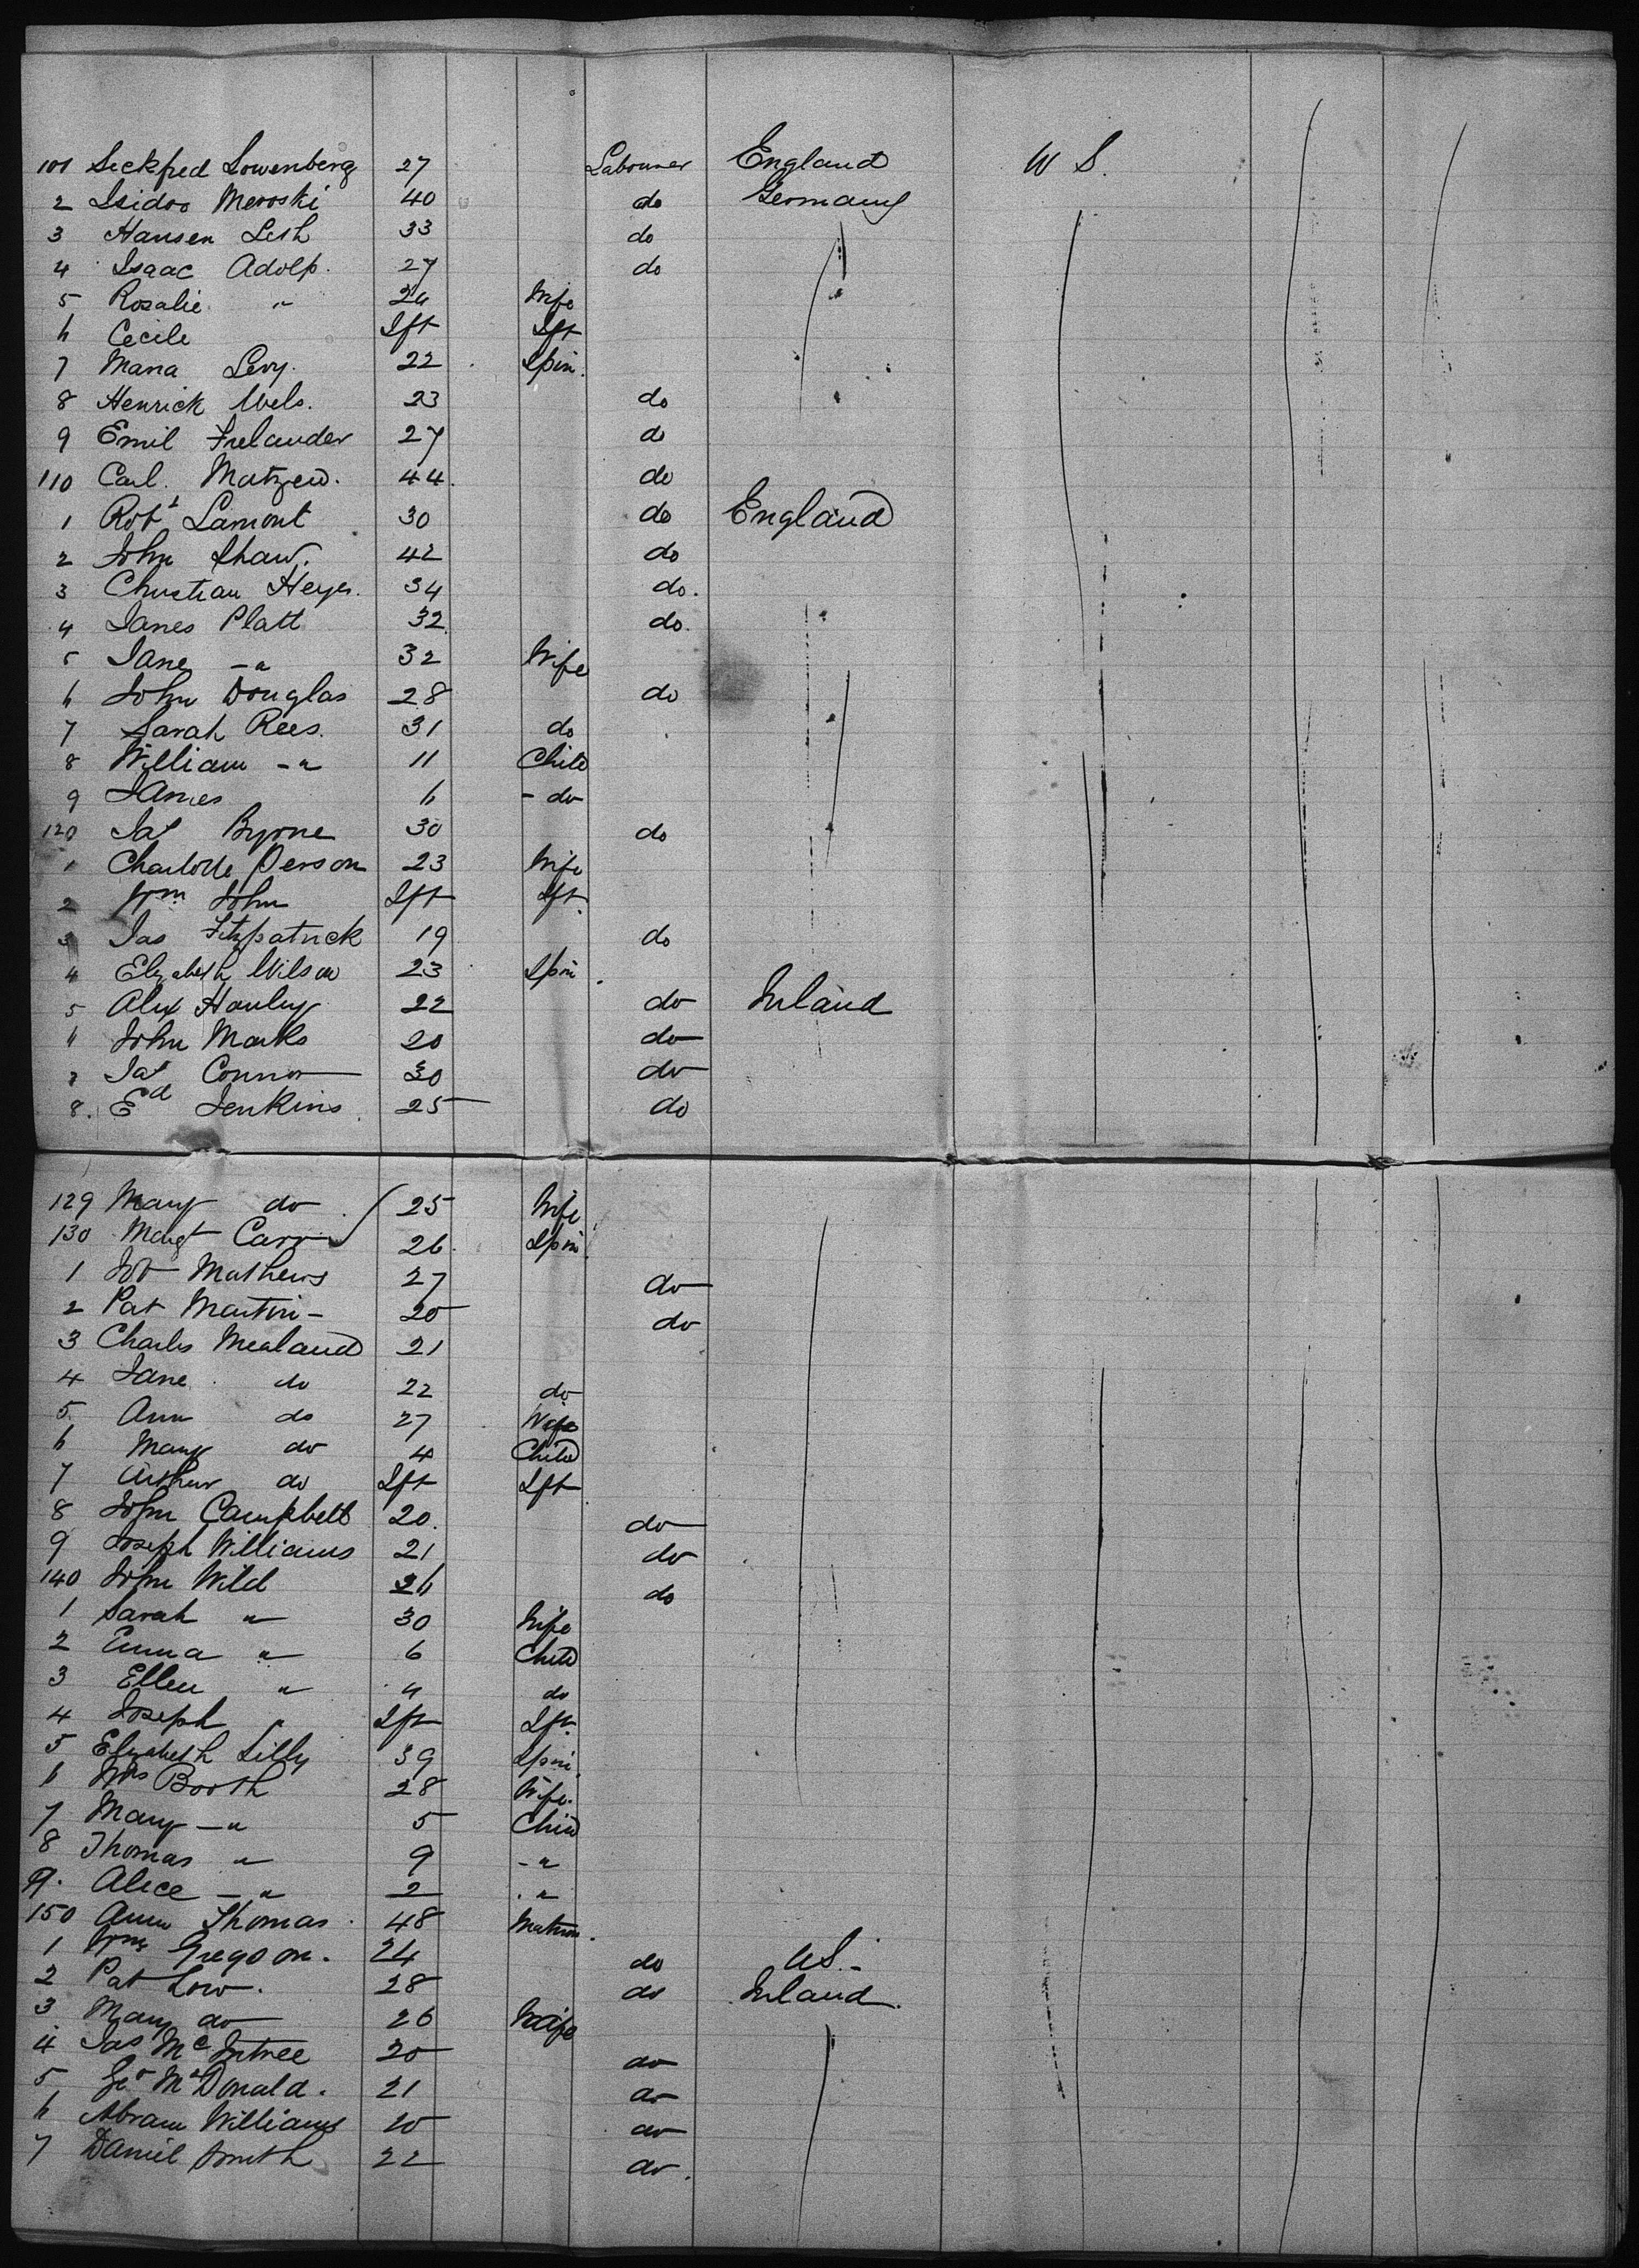 101 Seckfred Lowenberg 27 Labourer England W S.
2 Isidoo Meroski 40 do Germany
3 Hansen Lesh 33 do
4 Isaac Adolp. 27 do
5 Rosalie " 24 Wife
6 Cecile Ift Ift
7 Maria Levy. 22 Spin.
8 Henrick Wels. 23 do
9 Emil Frelander 27 do
110 Carl. Matzew. 44. do
1 Robt Lamont 30 do England
2 John Shaw. 42 do
3 Christian Heyer. 34 do.
4 James Platt 32 do.
5 Jane - " 32 Wife
6 John Douglas 28 do
7 Sarah Rees. 31 do
8 William - " 11 Child
9 James 6 - do
120 Pat Byrne 30 do
1 Charlotte Person 23 Wife
2 Wm John Ift Ift.
3 Jas Fitzpatrick 19 do
4 Elizabeth Wilson 23 Spin.
5 Alex Hanley 22 do Ireland
6 John Marks 20 do
7 Pat Connor 30 do
8. Ed Jenkins. 25 do
129 Mary do 25 Wife
130 Margt Carr 26. Spin.
1 Mathews 27 do
2 Pat Martin - 20 do
3 Charles Mealand 21
4 Jane do 22 do
5 Ann do 27 Wife
6 Mary do 4 Child
7 Arthur do Ift Ift
8 John Campbell 20. do
9 Joseph Williams 21 do
140 John Wild 26 do
1 Sarah " 30 Wife
2 Emma " 6 Child
3 Ellen " 4 do
4 Joseph " Ift Ift.
5 Elizabeth Lilly 39 Spin.
6 Mrs Booth 28 Wife.
7 Mary - " 5 Child
8 Thomas " 9 - "
9. Alice - " 2 . "
150 Ann Thomas. 48 Matron.
1 Wm Gregson. 24 do US. -
2 Pat Low. 28 do Ireland.
3 Mary do 26 Wife
4 Jas McIntree 20 do
5 Geo McDonald. 21 do
6 Abram Williams 20 do
7 Daniel Smith 22 do.